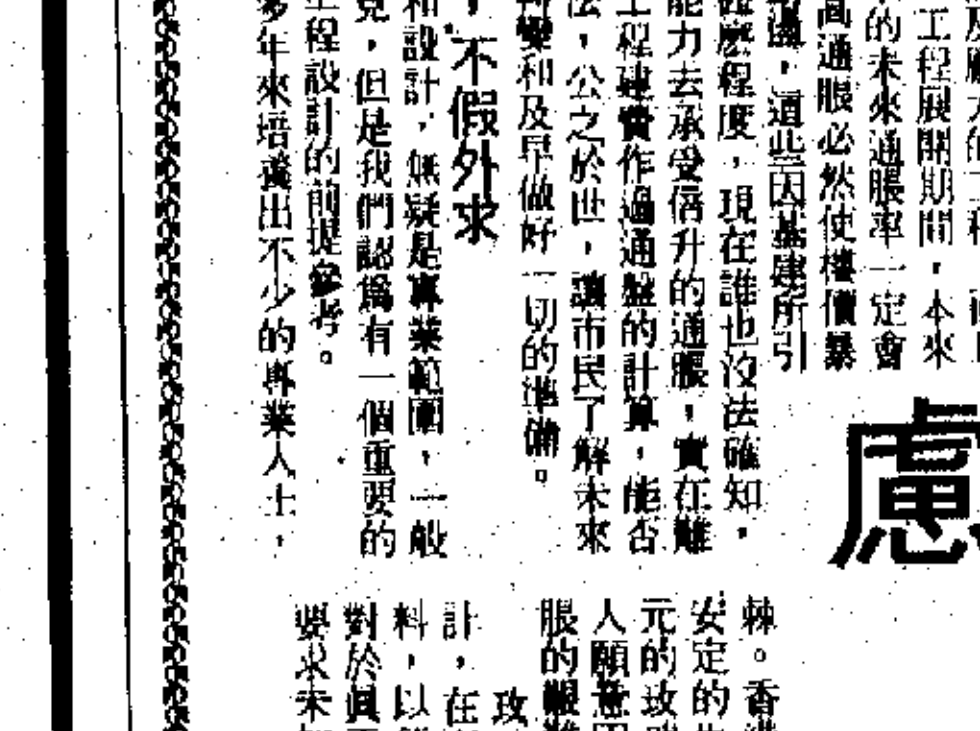 工程展開期間，本來
的未來通脹率一定會
高通脹必然使樓價暴
，這些因基建所引
程度，現在誰也沒法確知，
能力去承受倍升的通脹，實在難
工程建費作過通盤的計算，能否
法，公之於世，讓市民了解未來
變和及早做好一切的準備。
，不假外求
和設計，無疑是專業範圍，一般
見，但是我們認爲有一個重要的
工程設計的前提參考。
多年來培養出不少的專業人士，
慮
棘。香港
安定的
元的玫
人願意
脹的艱難
玫
計，在
料，以
對於眞
要求未